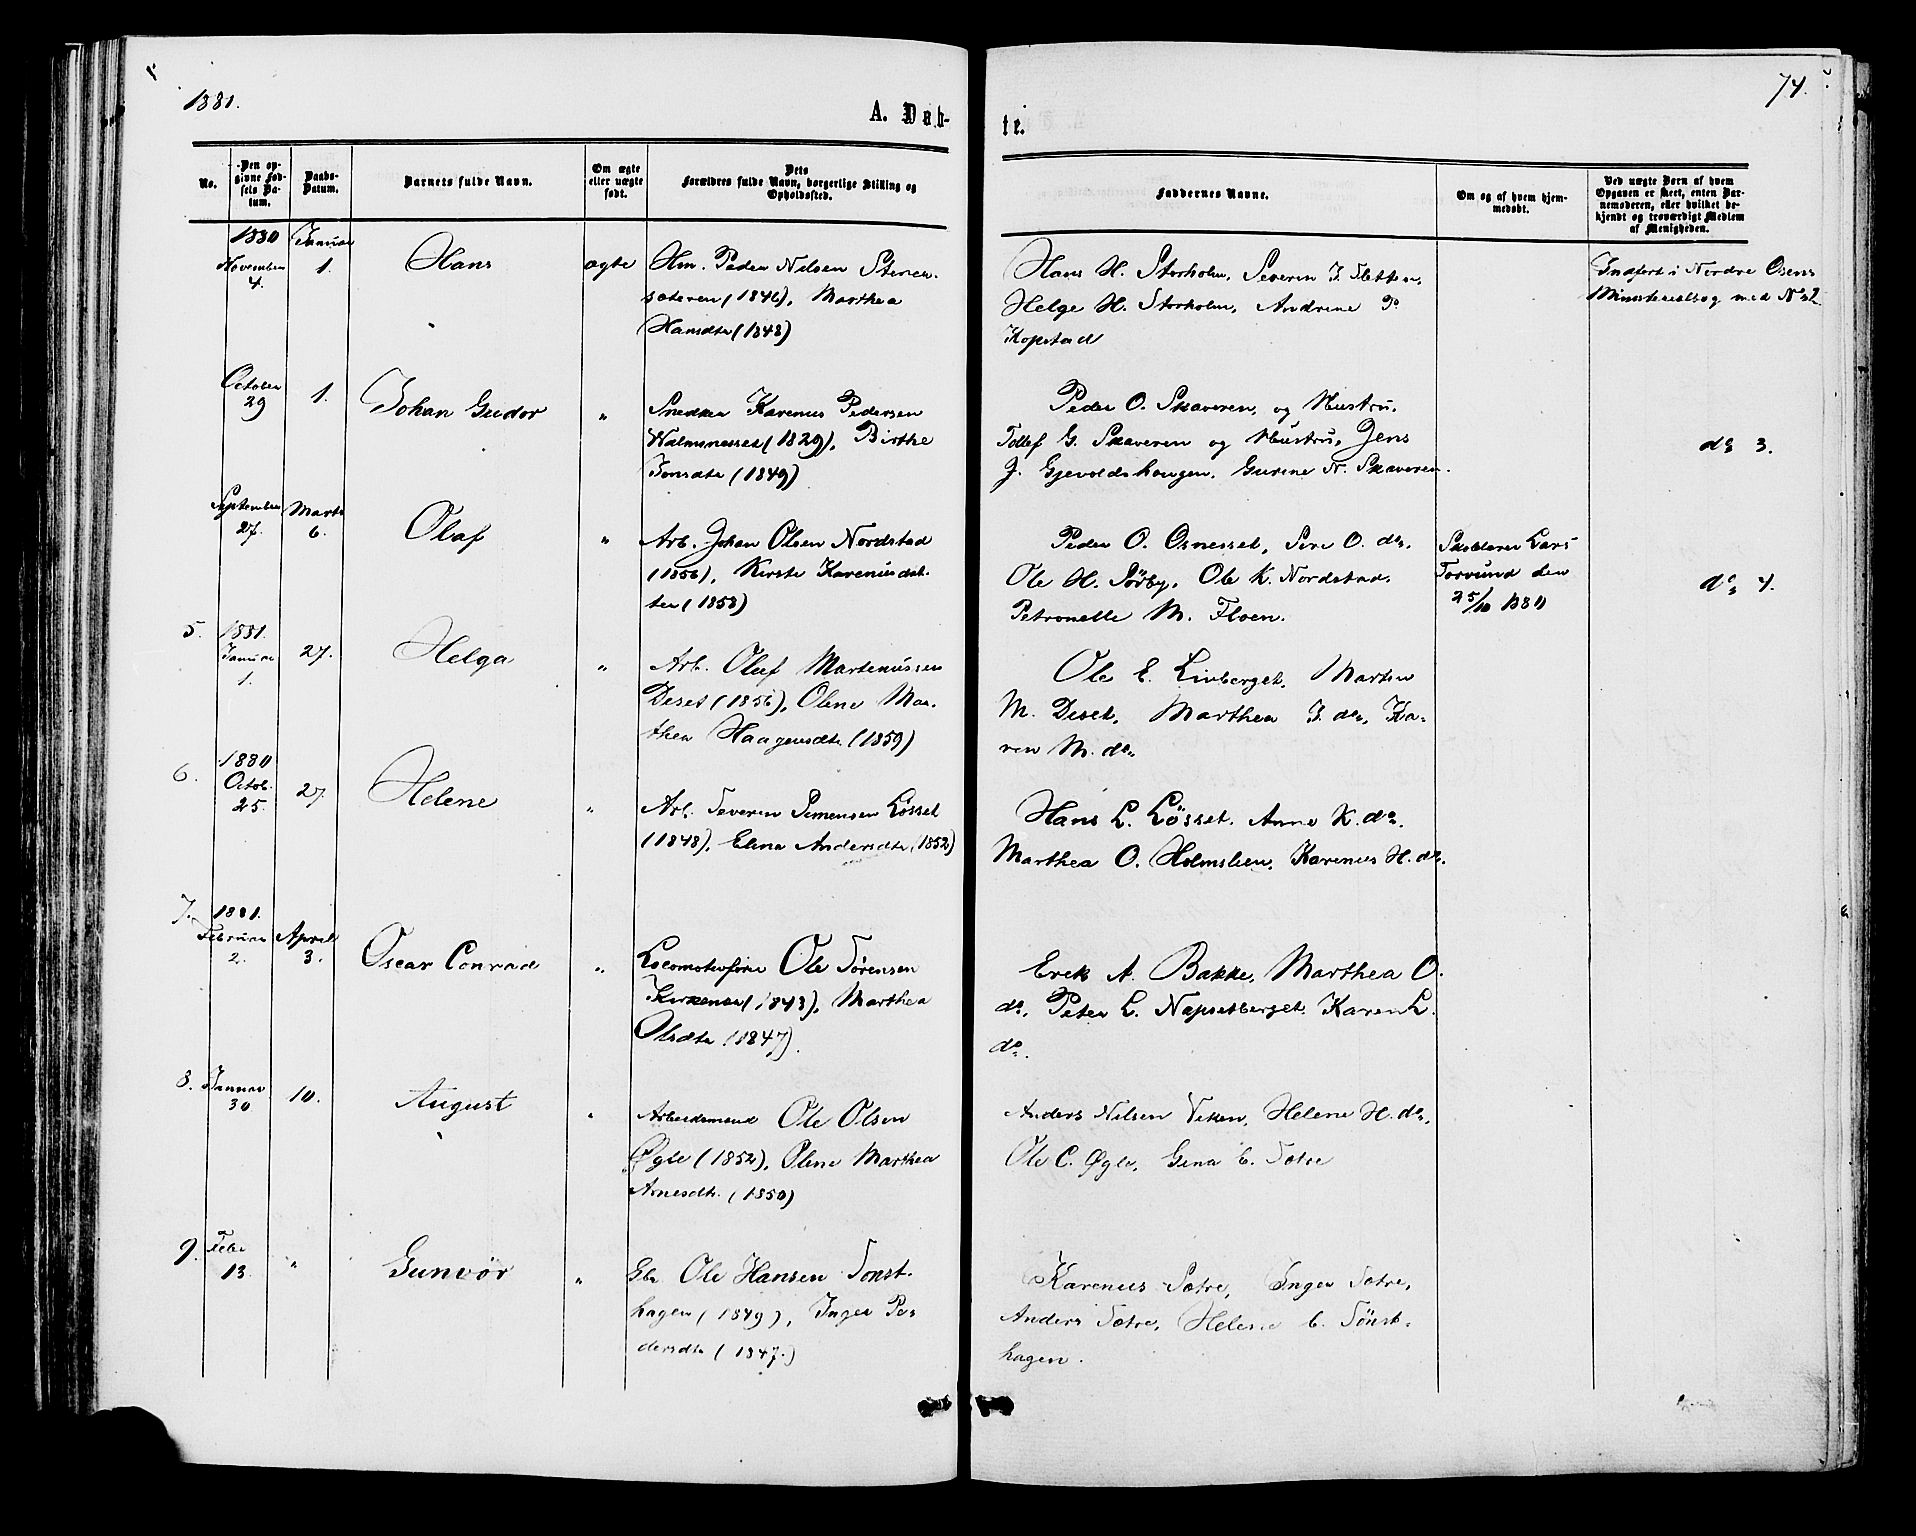 1881.
74.
A. Døb-
te.
No.
Den op-
givne Fød-
sels Da-
tum.
Daabs-
Datum.
Barnets fulde Navn.
Om ægte
eller uægte
født.
Dets
Forældres fulde Navn, borgerlige Stilling og
Opholdssted.
Faddernes Navne.
Om og af hvem hjem-
medøbt.
Ved uægte Børn af hvem
Opgaven er skeet, enten Bar-
nemoderen, eller hvilket be-
kjendt og troværdigt Medlem
af Menigheden.
1880
November
4.
Januar
1.
Hans
ægte
Hm. Peder Nilsen Stener-
sæteren (1846), Marthea
Hansdtr (1848)
Hans H. Storholm, Severin J. Sletten,
Helge H. Storholm, Andrine P.
Kopstad
Indført i Nordre Osens
Ministerialbog med No 2
October
29
1.
Johan Gudor
"
Snedker Karenus Pedersen
Valmsnesset (1829), Birthe
Jonsdtr (1849)
Peder O. Skaveren, og Hustru,
Tollef G. Skaveren og Hustru, Jens
J. Gjevoldshaugen, Gurine N. Skaveren.
do 3.
September
27.
Marts
6.
Olaf
"
Arb. Johan Olsen Nordstad
(1856), Kirste Karenusdat-
ter (1858)
Peder O. Osnesset, Siri O. do,
Ole H. Sørby, Ole K. Nordstad,
Petronelle M. Floen.
Skolelærer Lars
Torvund den
25/10 1880
do 4.
5.
1881.
Januar
1.
27.
Helga
"
Arb. Oluf Martinussen
Deset (1856), Olene Mar-
thea Haagensdtr (1859)
Ole E. Linberget, Martin
M. Deset, Marthea J. do, Ka-
ren M. do
6.
1880
Octob.
25.
27
Helene
"
Arb. Severin Simensen Løsset
(1848), Elina Andersdtr (1852)
Hans L. Løsset, Anne K. do,
Marthea O. Holmslien, Karenus H. do.
7.
1881.
Februar
2.
April
3.
Oscar Conrad
"
Locomotivfører Ole Sørensen
Kirkenær (1843), Marthea
Olsdtr (1847).
Erik A. Bakke, Marthea O.
do, Peter L. Næpsetberget, Karen L.
do.
8.
Januar
30
10.
August
"
Arbeidsmand Ole Olsen
Øgle (1852), Olene Marthea
Arnesdtr. (1850)
Anders Nilsen Viken, Helene H. do,
Ole C. Øgle, Gina E. Sætre
9.
Febr
13.
"
Gunvør
"
Gbr Ole Hansen Sønst-
hagen (1849), Inger Pe-
dersdtr (1847.)
Karenus Sætre, Inger Sætre,
Anders Sætre, Helene C. Sønst-
hagen.